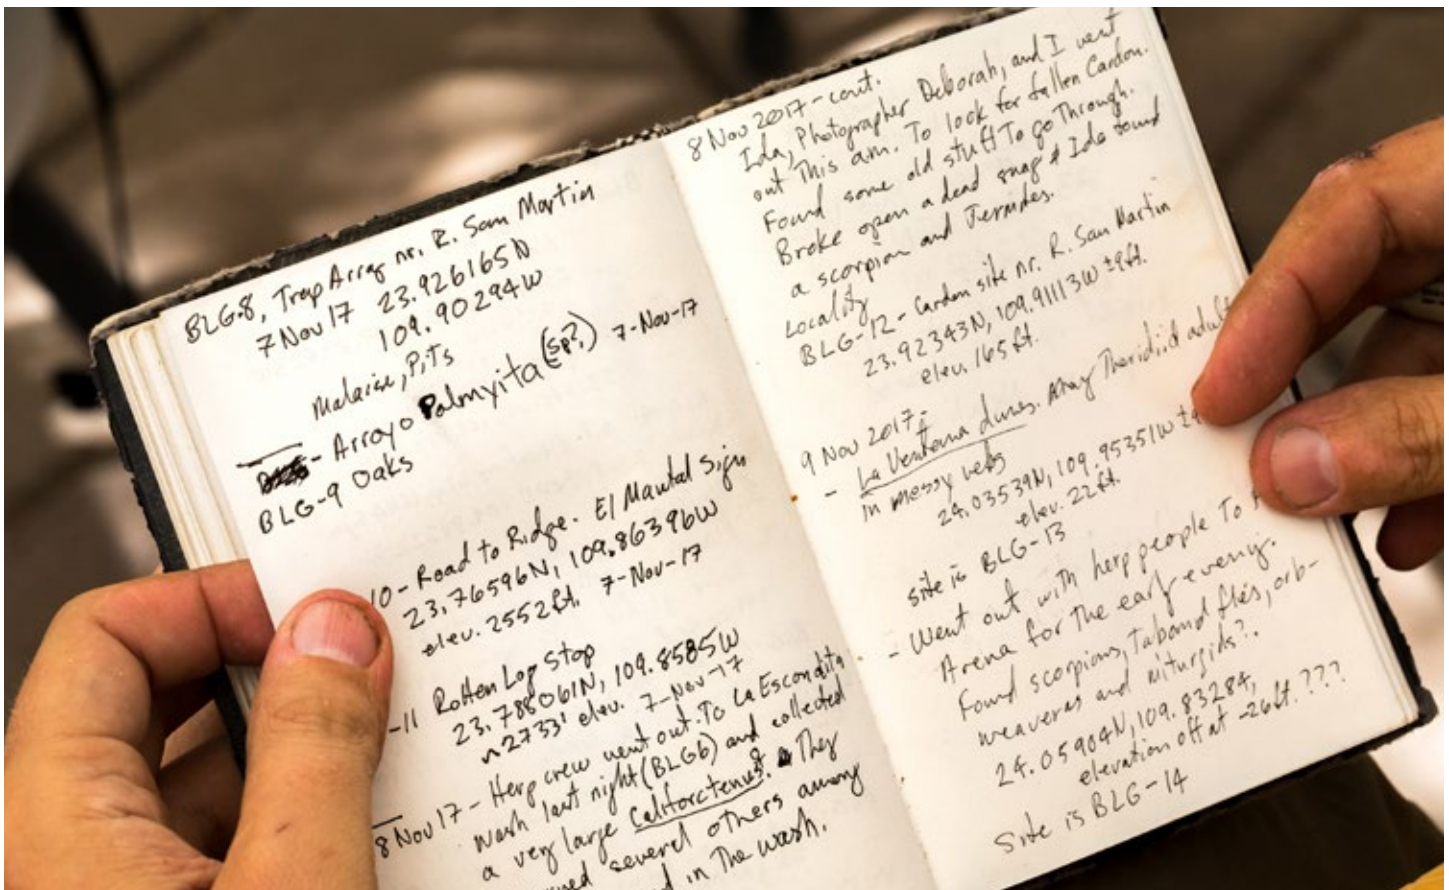 BLG-8, Trap Array nr. R. San Martin
7 Nov 17 23.926165N
109.90294W
Malaise, Pits
- Arroyo Palmyita (sp?) 7-Nov-17
BLG-9 Oaks
10 - Road to Ridge. El Mautal Sign
23.76596N, 109.86396W
elev. 2552ft. 7-Nov-17
-11 Rotten Log Stop
23.788061N, 109.8585W
~2733' elev. 7-Nov-17
8 Nov 17 - Herp crew went out To La Escondita
wash last night (BLG6) and collected
a very large Califorctenus. They
several others among
in The wash.
8 Nov 2017 - cont.
Ida, Photographer Deborah, and I went
out This am. To look for fallen Cardon.
Found some old stuff To go Through.
Broke open a dead snag & Ida found
a scorpion and Termites.
Locality
BLG-12 - Cardon site nr. R. San Martin
23.92343N, 109.91113W ±9ft.
elev. 165ft.
9 Nov 2017 -
- La Ventana dunes. Many Theridiid adult
in messy webs
24.03539N, 109.95351W ±
elev. 22ft.
site is BLG-13
- Went out with herp people To
Arena for the early evening.
Found scorpions, Tabanid flies, orb-
weavers and miturgids?.
24.05904N, 109.83284,
elevation off at -26ft.???
Site is BLG-14